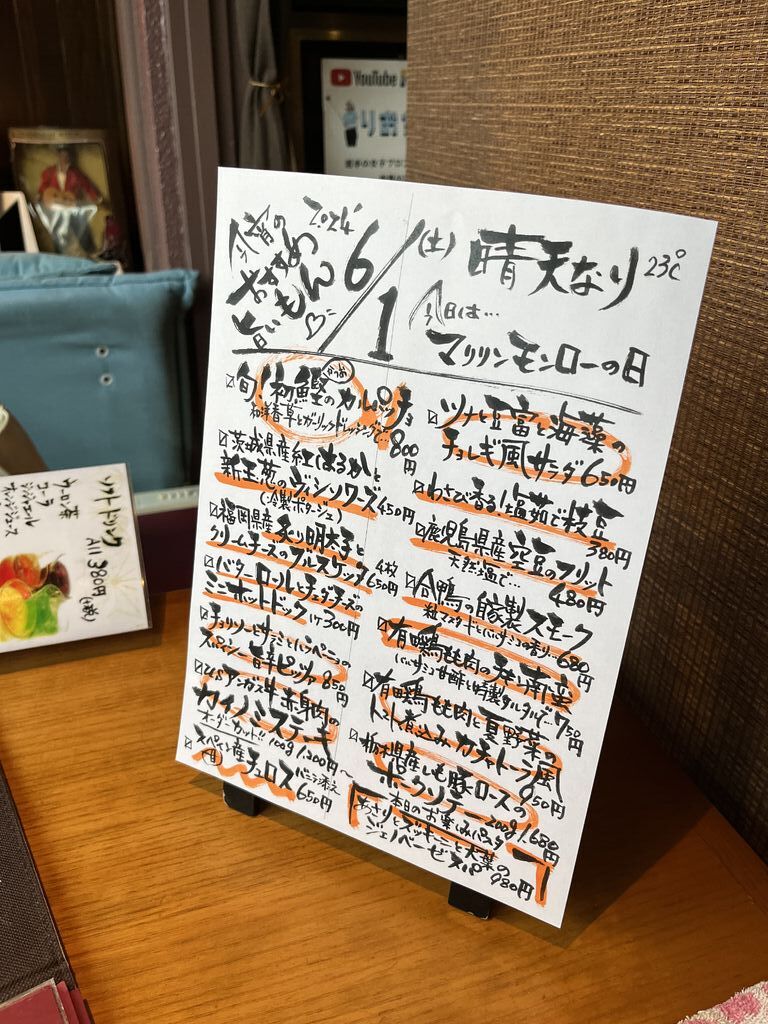 YouTube
今宵の
おすすめ
旨いもん
2024'
6/1
(土)
晴天なり
23℃
今日は…
マリリンモンローの日
旬!初鰹のカルパッチョ
かつお
和洋香草とガーリックドレッシングで…
800円
茨城県産紅はるかと
新玉葱のヴィシソワーズ 450円
(冷製ポタージュ)
福岡県産炙り明太子と
クリームチーズのブルスケッタ
4枚 650円
バターロールとチェダーチーズの
ミニホットドック 1ケ300円
チョリソーとサラミとハラペーニョの
スパイシー旨辛ピッツァ 850円
USアンガス牛赤身肉の
カイノミステーキ
オーダーカット!! 100g 1,200円〜
スペイン産
チュロス
バニラ添え
650円
ツナと豆富と海藻の
チョレギ風サラダ 650円
わさび香る!塩茹で枝豆
380円
鹿児島県産空豆のフリット
天然塩で… 480円
合鴨の自家製スモーク
粒マスタードとバルサミコの香り… 680円
有田鶏もも肉のチキン南蛮
バルサミコ甘酢と特製タルタルで… 750円
有田鶏もも肉と夏野菜の
トマト煮込みカチャトーラ風
950円
栃木県産いも豚ロースの
ポークソテー 200g 1,680円
本日のお楽しみパスタ
あさりとズッキーニと大葉の
ジェノベーゼスパ 980円
ソフトドリンク
All 380円(税)
ウーロン茶
コーラ
ジンジャエール
オレンジジュース